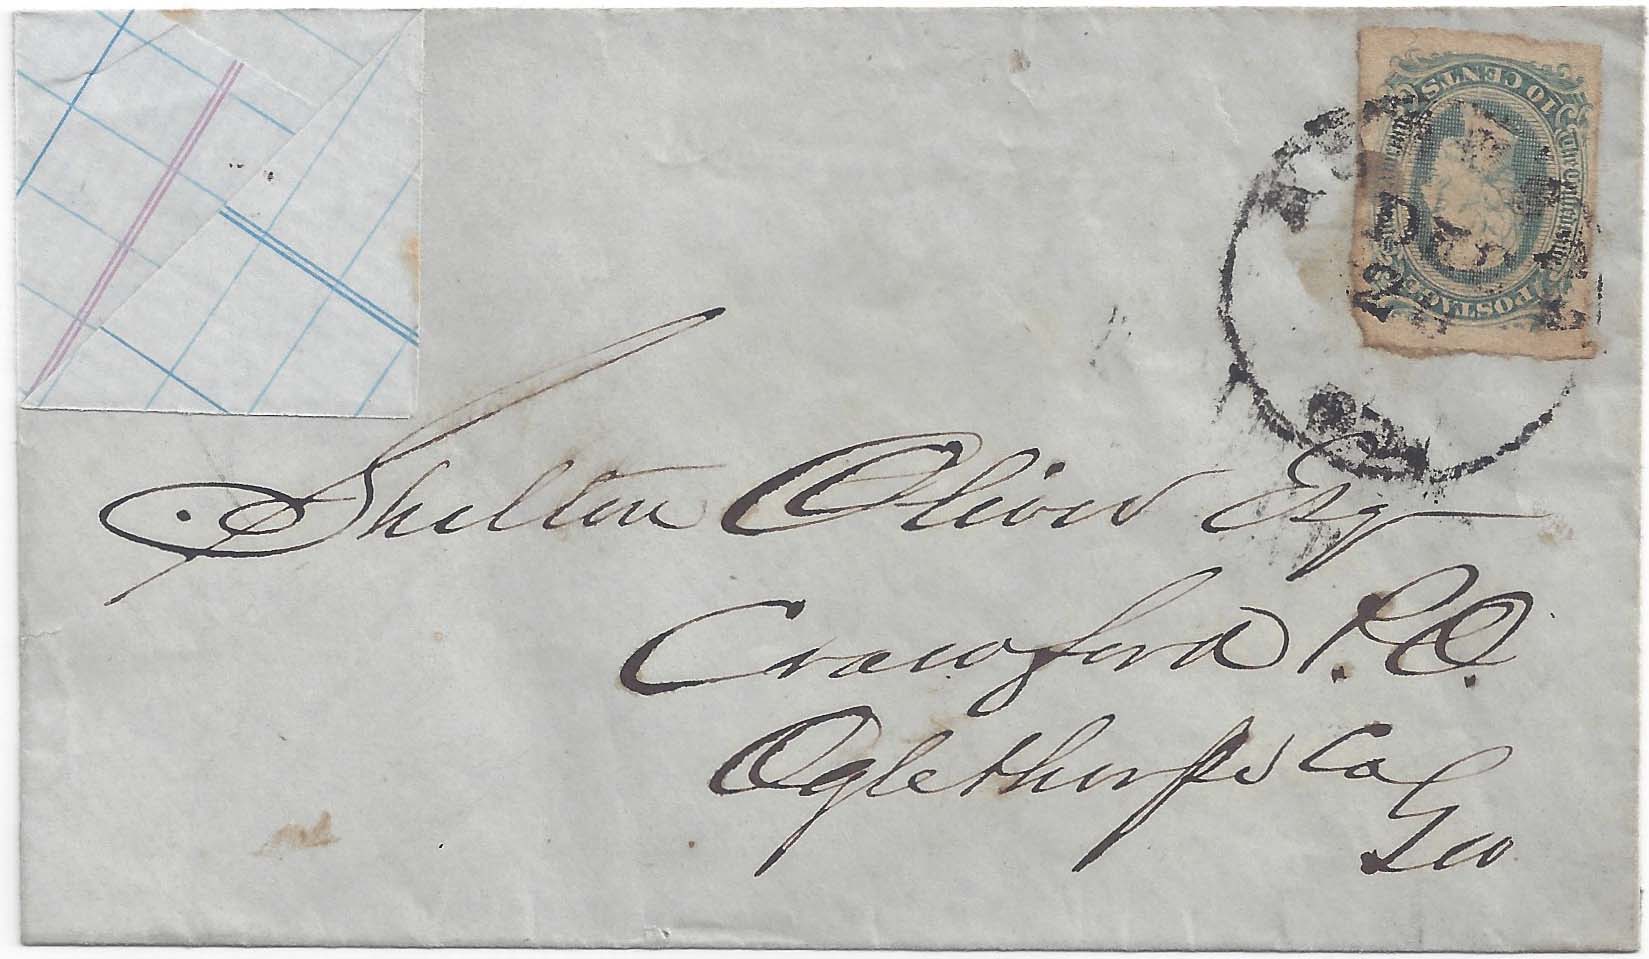 10 CENTS
The Confederate
POSTAGE
Shelton Oliver Esq
Crawford P.O.
Oglethorpe Co
Geo